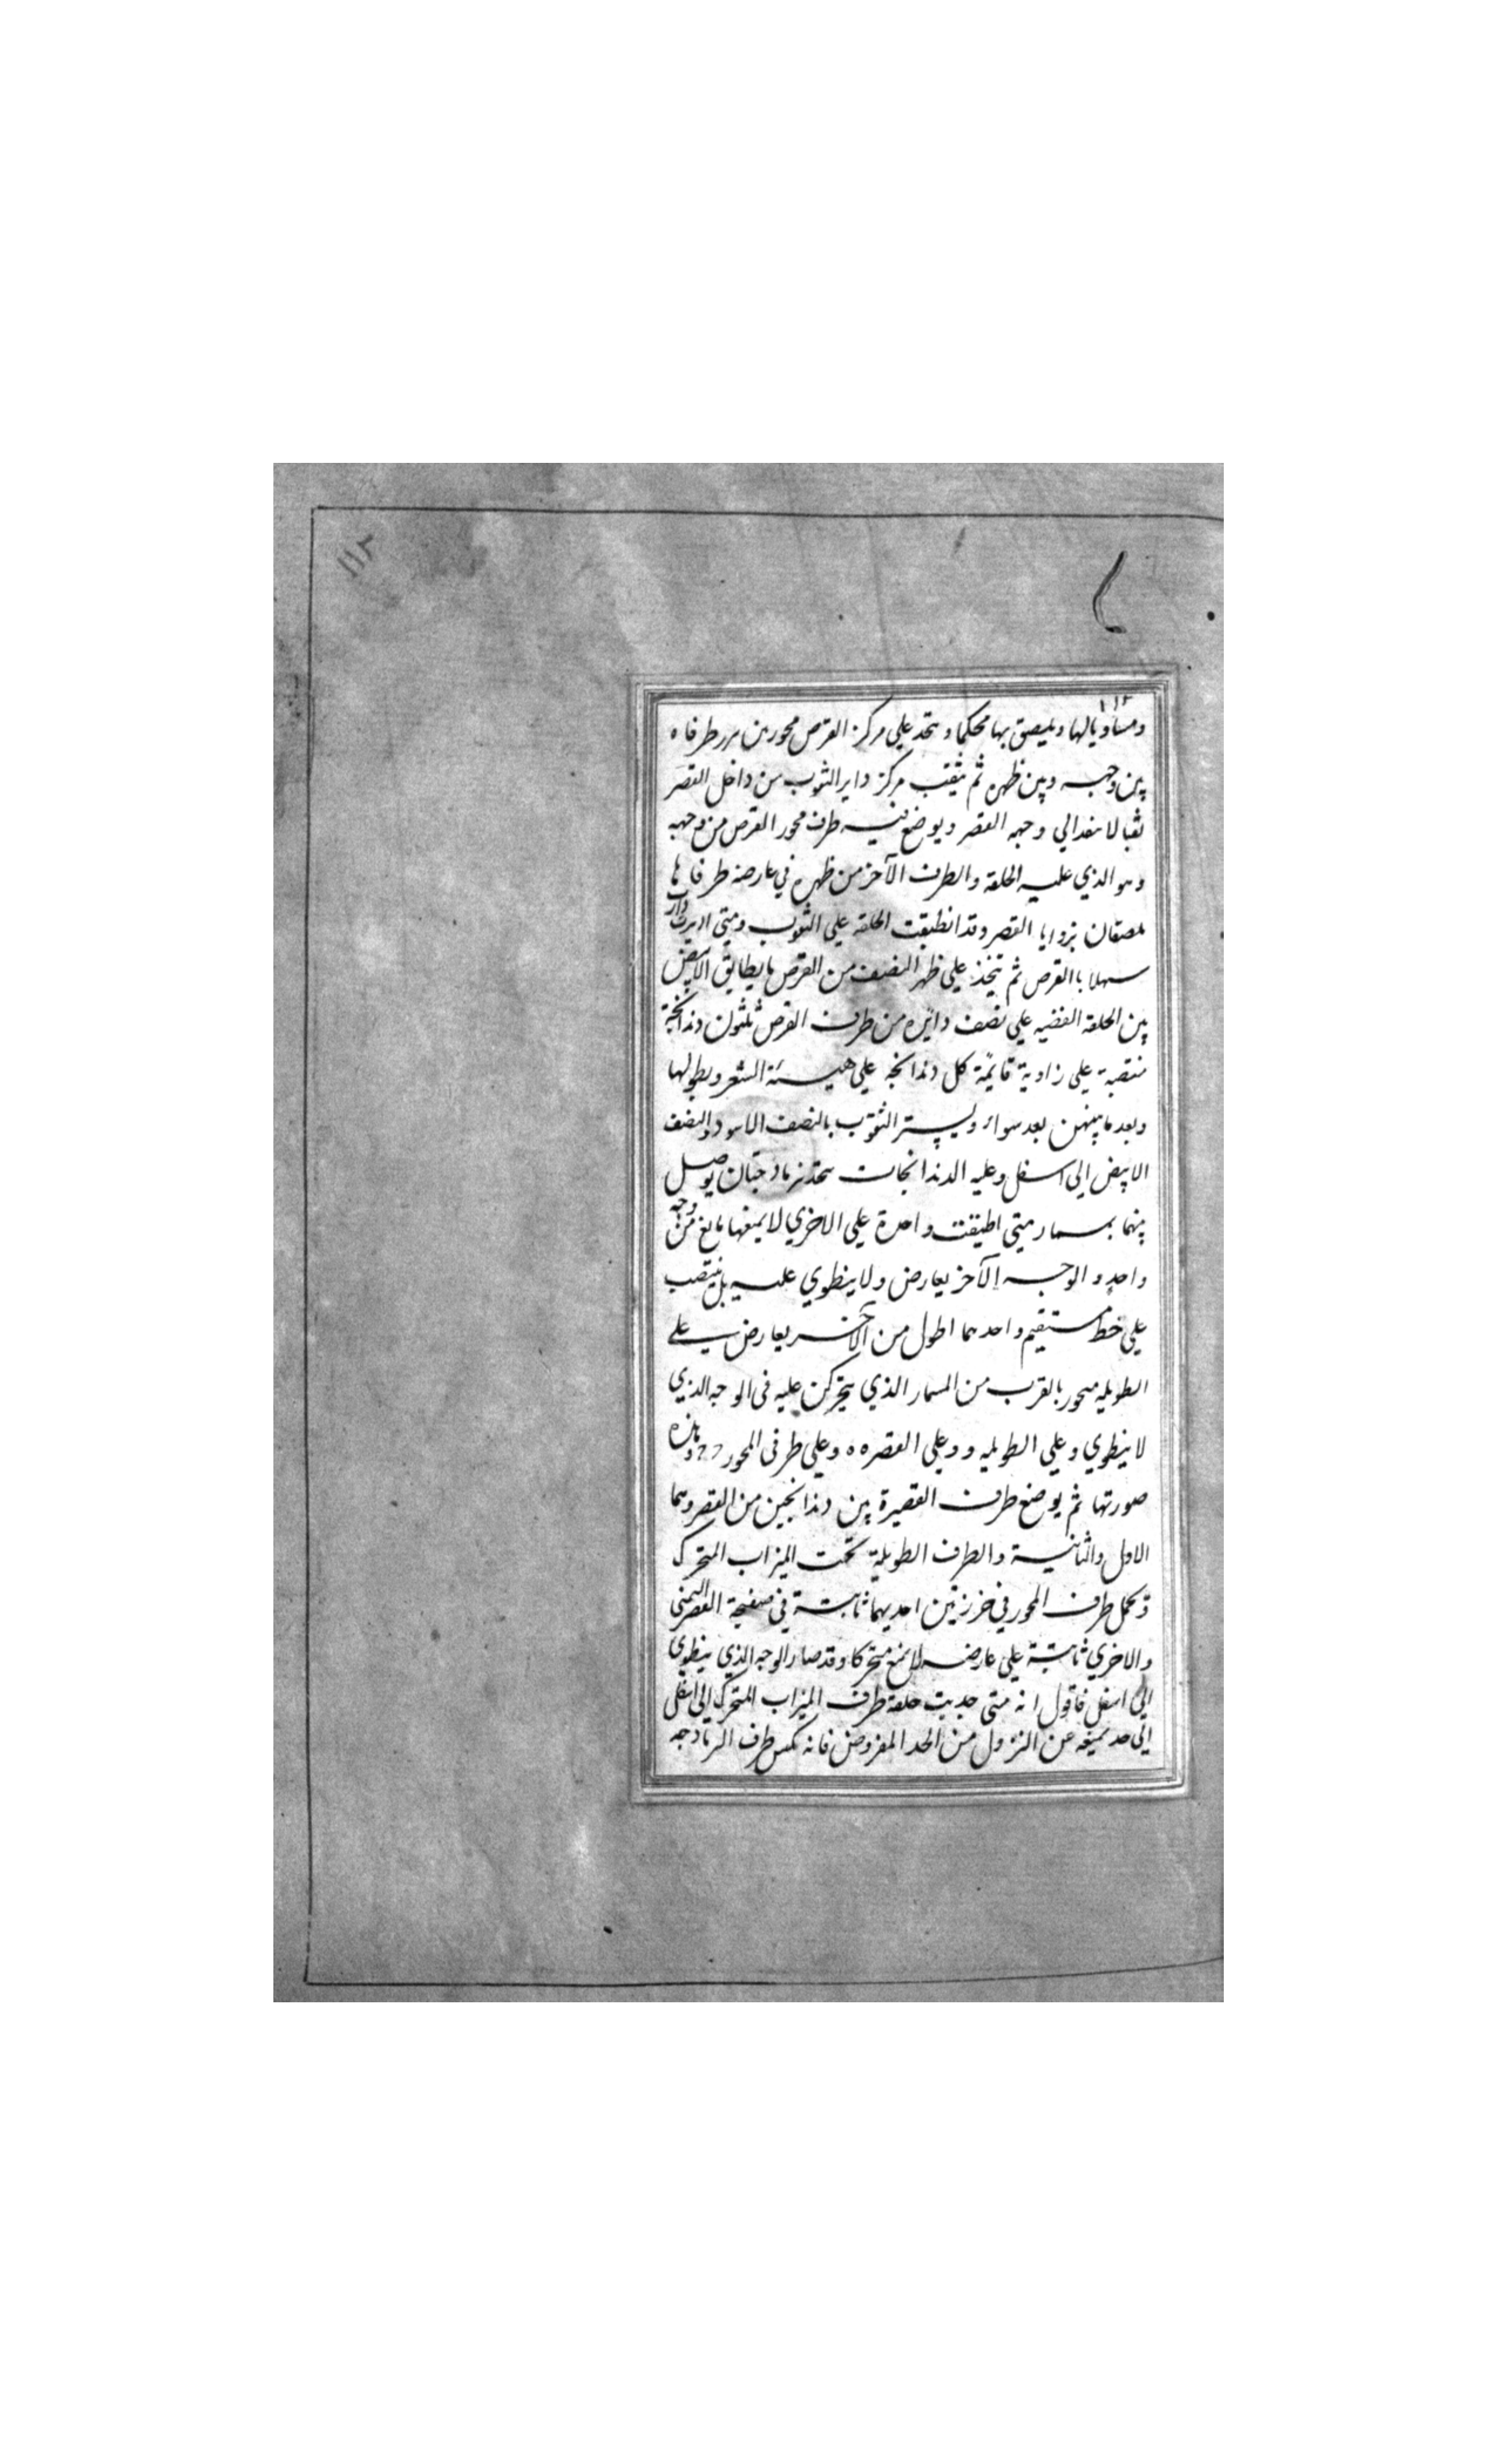 ١١٢
١١٢
ومساويا لها ويلصق بها محكما ويتخذ علي مركز القرص محور من برر طرفاه
بين وجهه وبين ظهره ثم يثقب مركز داير الثقوب من داخل القصر
ثقبا لا ينفد الي وجهه القصر ويوضع فيه طرف محور القرص من وجهه
وهو الذي عليه الحلقة والطرف الآخر من ظهره في عارضة طرفاها
ملصقان بزوايا القصر وقد انطبقت الحلقه علي الثقوب ومتي اديرت دار
سهلا باالقرص ثم يتخذ علي ظهر النصف من القرص ما يطابق الابيض
بين الحلقه الفضيه علي نصف دائره من طرف القرص ثلثون دندانجة
منتصبة علي زاوية قايمة كل دندانجه علي هيئة الشعر وبطولها
وبعد ما بينهن بعد سواء وليستر الثقوب بالنصف الاسود والنصف
الابيض الي اسفل وعليه الدندانجات يتخذ نرمادجتان يوصل
بينهما بمسمار متي اطبقت واحدة علي الاخري لا يمنعها مانع من وجه
واحد و الوجه الآخر يعارض ولا ينطوي عليه بل ينتصب
علي خط مستقيم واحدهما اطول من الآخر يعارض علي
الطويله محور بالقرب من المسمار الذي يتحركن عليه في الوجه الذي
لا ينطوي وعلي الطويله و وعلي القصره ه وعلي طرفي المحور ح ح وهذه
صورتها ثم يوضع طرف القصيرة بين دندانجين من القصر وهما
الاول والثانية والطرف الطويلة تحت الميزاب المتحرك
ويحمل طرف المحور في خرزتين احديهما ثابتة في صفيحة القصر اليمني
والاخري ثابتة علي عارضه لا يمنع متحركا وقد صار الوجه الذي ينطوي
الي اسفل فاقول انه متي جذبت حلقة طرف الميزاب المتحرك الي اسفل
الي حد يمنعه عن النزول من الحد المفروض فانه يكبس طرف النرمادجه